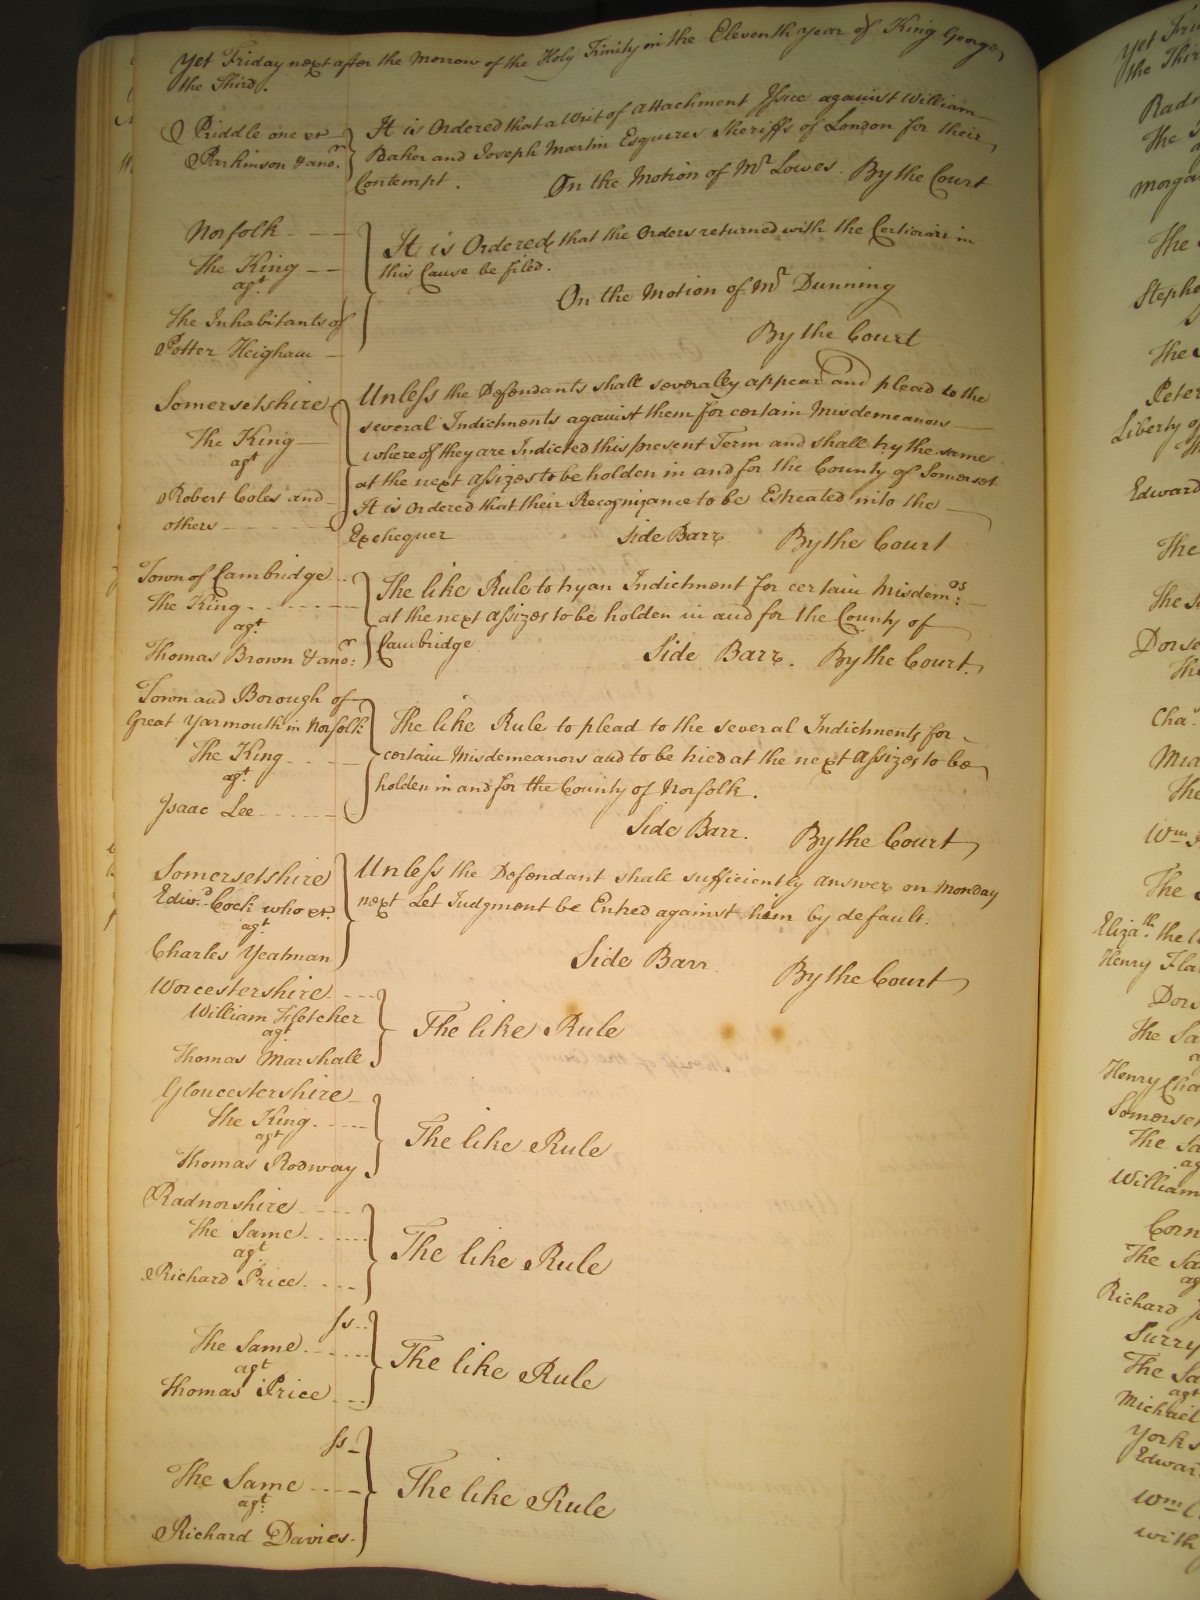 Yet Friday next after the Morrow of the Holy Trinity in the Eleventh year of King George
the Third.
Riddle one &c
Parkinson & anor.
It is Ordered that a Writ of Attachment Issue against William
Baker and Joseph Martin Esquires Sheriffs of London for their
Contempt.
On the Motion of Mr Lowes. By the Court
Norfolk
The King
agt.
The Inhabitants of
Potter Heigham
It is Ordered that the Orders returned with the Certiorari in
this Cause be filed.
On the Motion of Mr Dunning
By the Court
Somersetshire
The King
agt
Robert Coles and
others
Unless the Defendants shall severally appear and plead to the
several Indictments against them for certain Misdemeanors
whereof they are Indicted this present Term and shall try the same
at the next Assizes to be holden in and for the County of Somerset
It is Ordered that their Recognizance to be Estreated into the
Exchequer
Side Barr By the Court
Town of Cambridge
The King
agt.
Thomas Brown & anor:
The like Rule to try an Indictment for certain Misdem:ors
at the next Assizes to be holden in and for the County of
Cambridge
Side Barr. By the Court.
Town and Borough of
Great Yarmouth in Norfolk
The King
agt.
Isaac Lee
The like Rule to plead to the several Indictments for
certain Misdemeanors and to be tried at the next Assizes to be
holden in and for the County of Norfolk.
Side Barr. By the Court
Somersetshire
Edwd. Cock who &c.
agt.
Charles Yeatman
Unless the Defendant shall sufficiently answer on Monday
next Let Judgment be Entred against him by default.
Side Barr. By the Court
Worcestershire
William Fletcher
agt
Thomas Marshall
The like Rule
Gloucestershire
The King
agt
Thomas Rodway
The like Rule
Radnorshire
The Same
agt.
Richard Price
The like Rule
Ss
The Same
agt
Thomas Price
The like Rule
Ss
The Same
agt.
Richard Davies
The like Rule
Yet
the
The
The
Stepho
The
Peter
Liberty of
Edward
The
The
The
Cha
The
Wm
The
Elizath. the
Henry
The Sa
Henry
Somerset
The Sa
ag
William
Corn
The Sa
ag
Richard
Surry
The Sa
agt
Michael
Yorks
Edwar
Wm
with